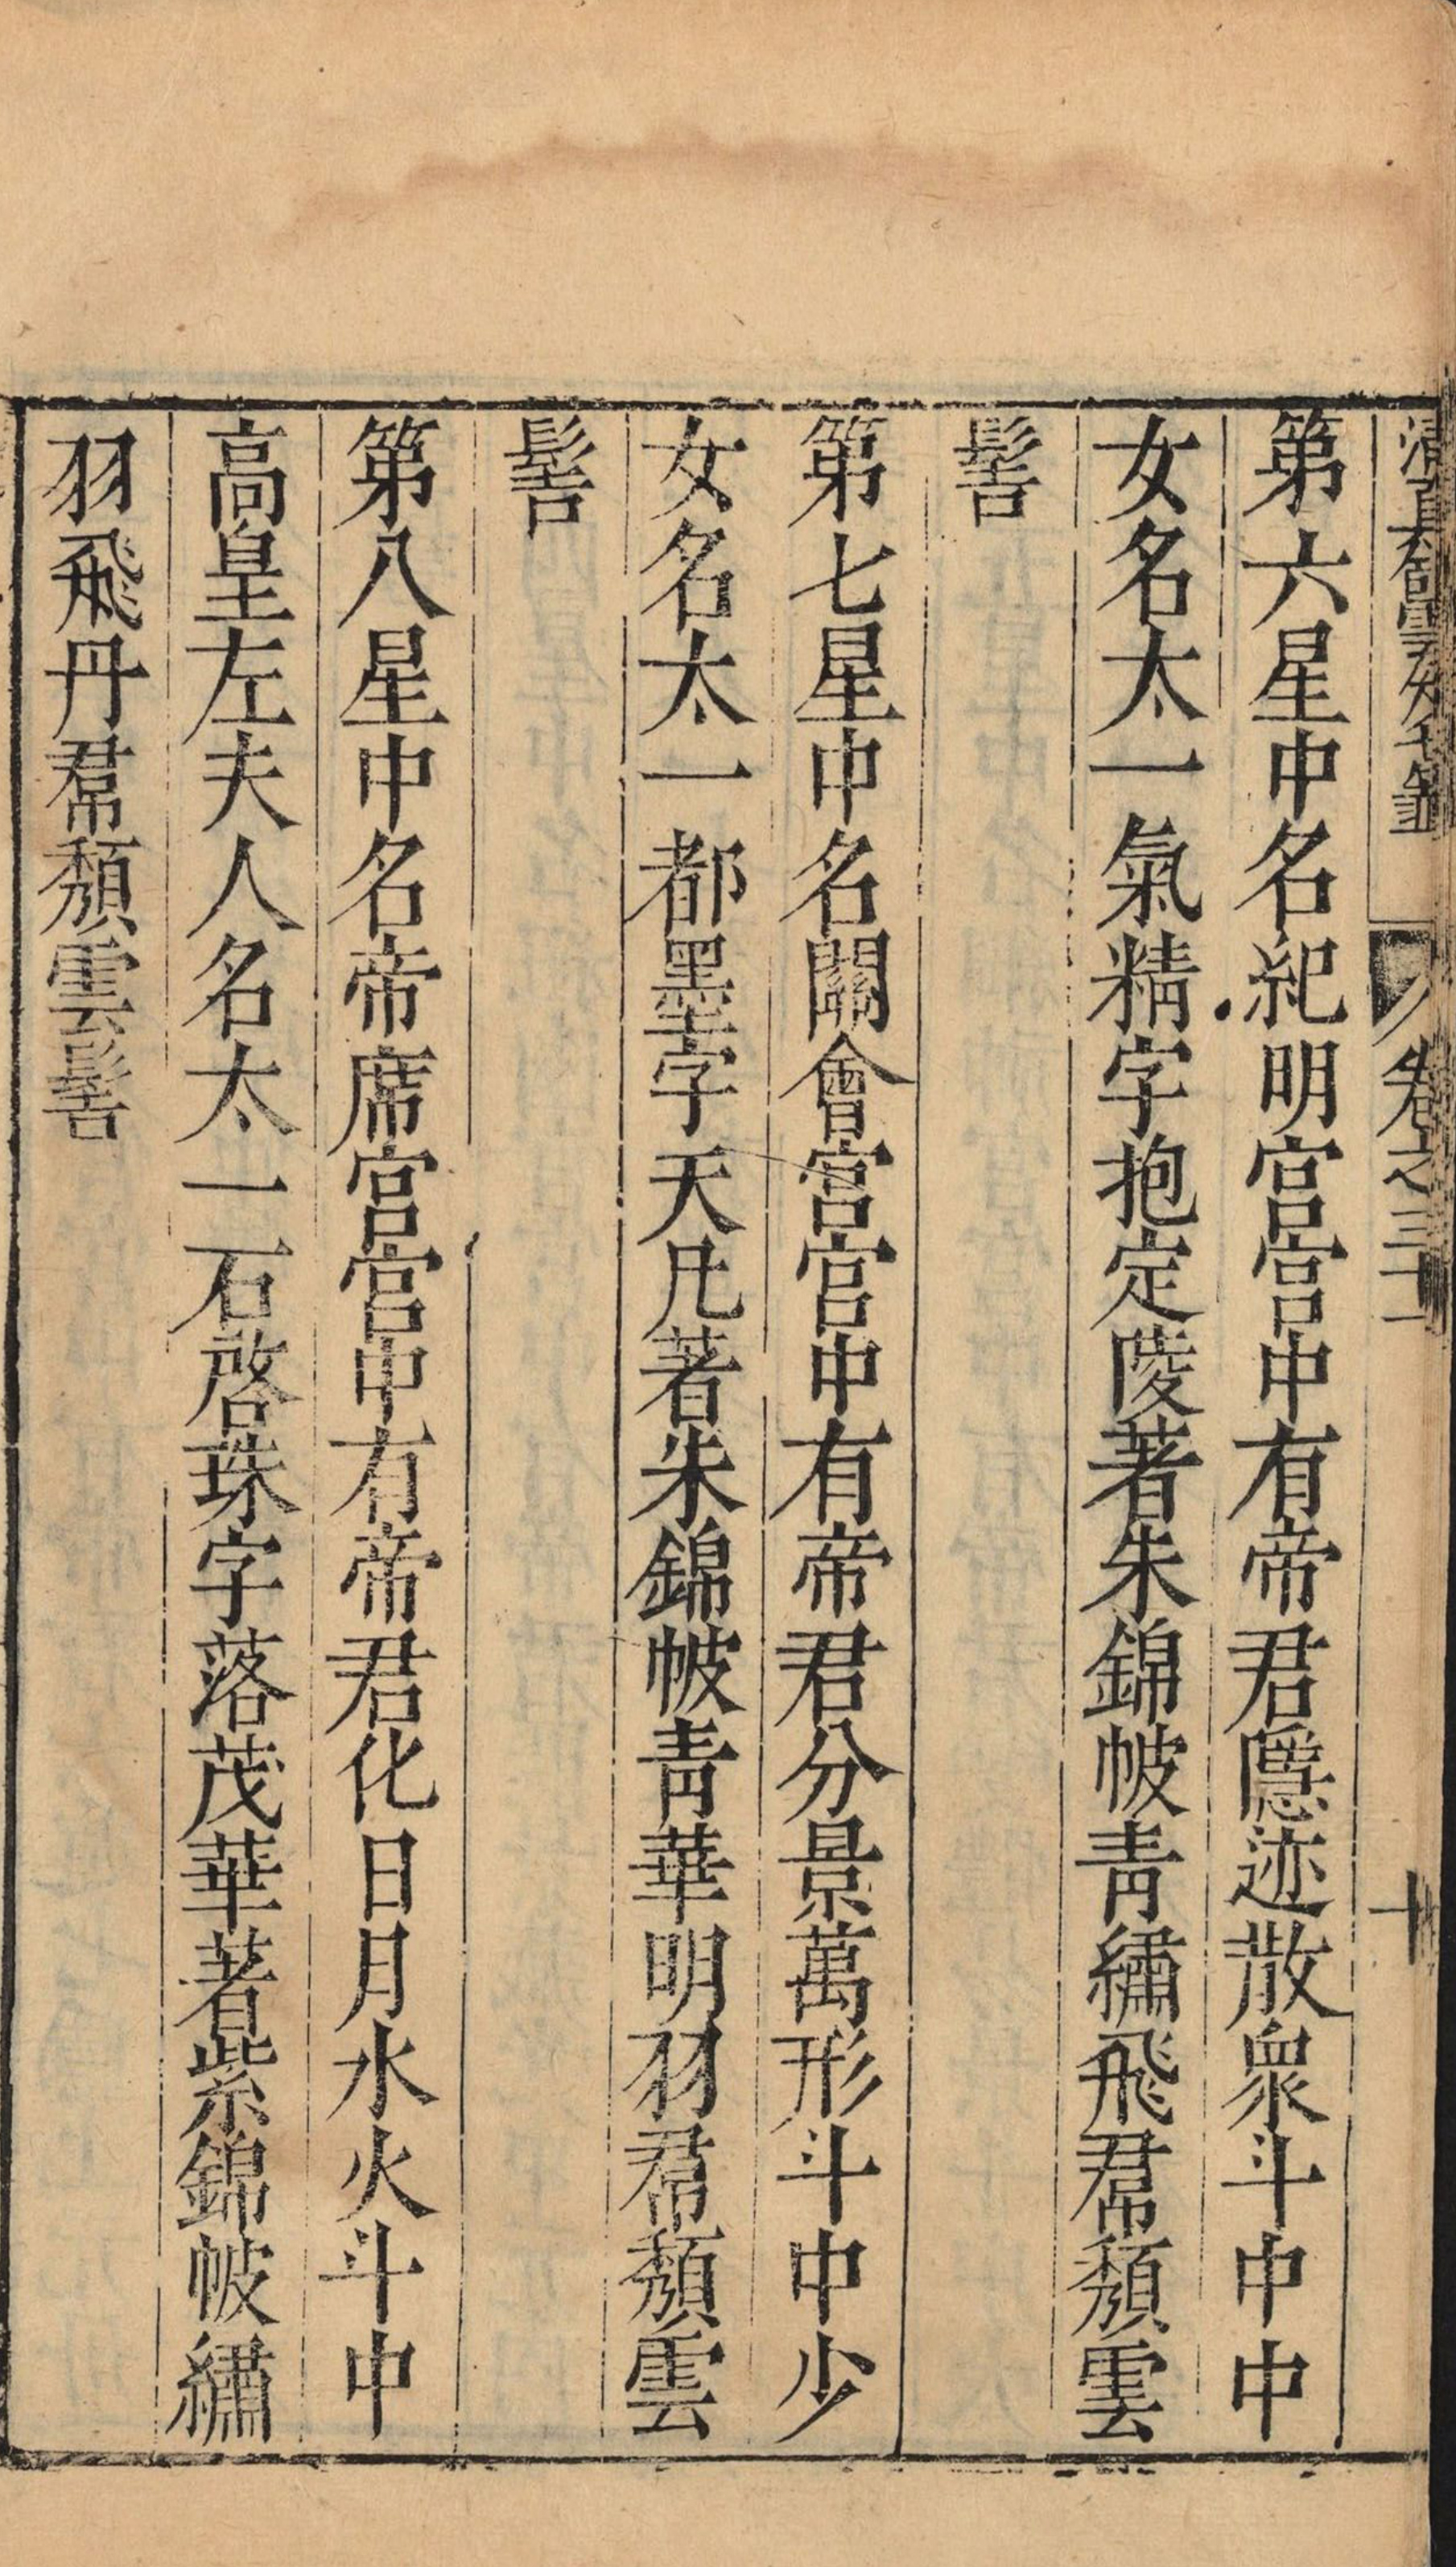 卷之三十一
十
第六星中名紀明宮宮中有帝君隱迹散衆斗中中
女名太一氣精字抱定陵著朱錦帔青繡飛帬頹雲
髻
第七星中名關會宮宮中有帝君分景萬形斗中少
女名太一都墨字天凡著朱錦帔青華明羽帬頹雲
髻
第八星中名帝席宮宮中有帝君化日月水火斗中
高皇左夫人名太一石啓珠字落茂華著紫錦帔繡
羽飛丹帬頹雲髻